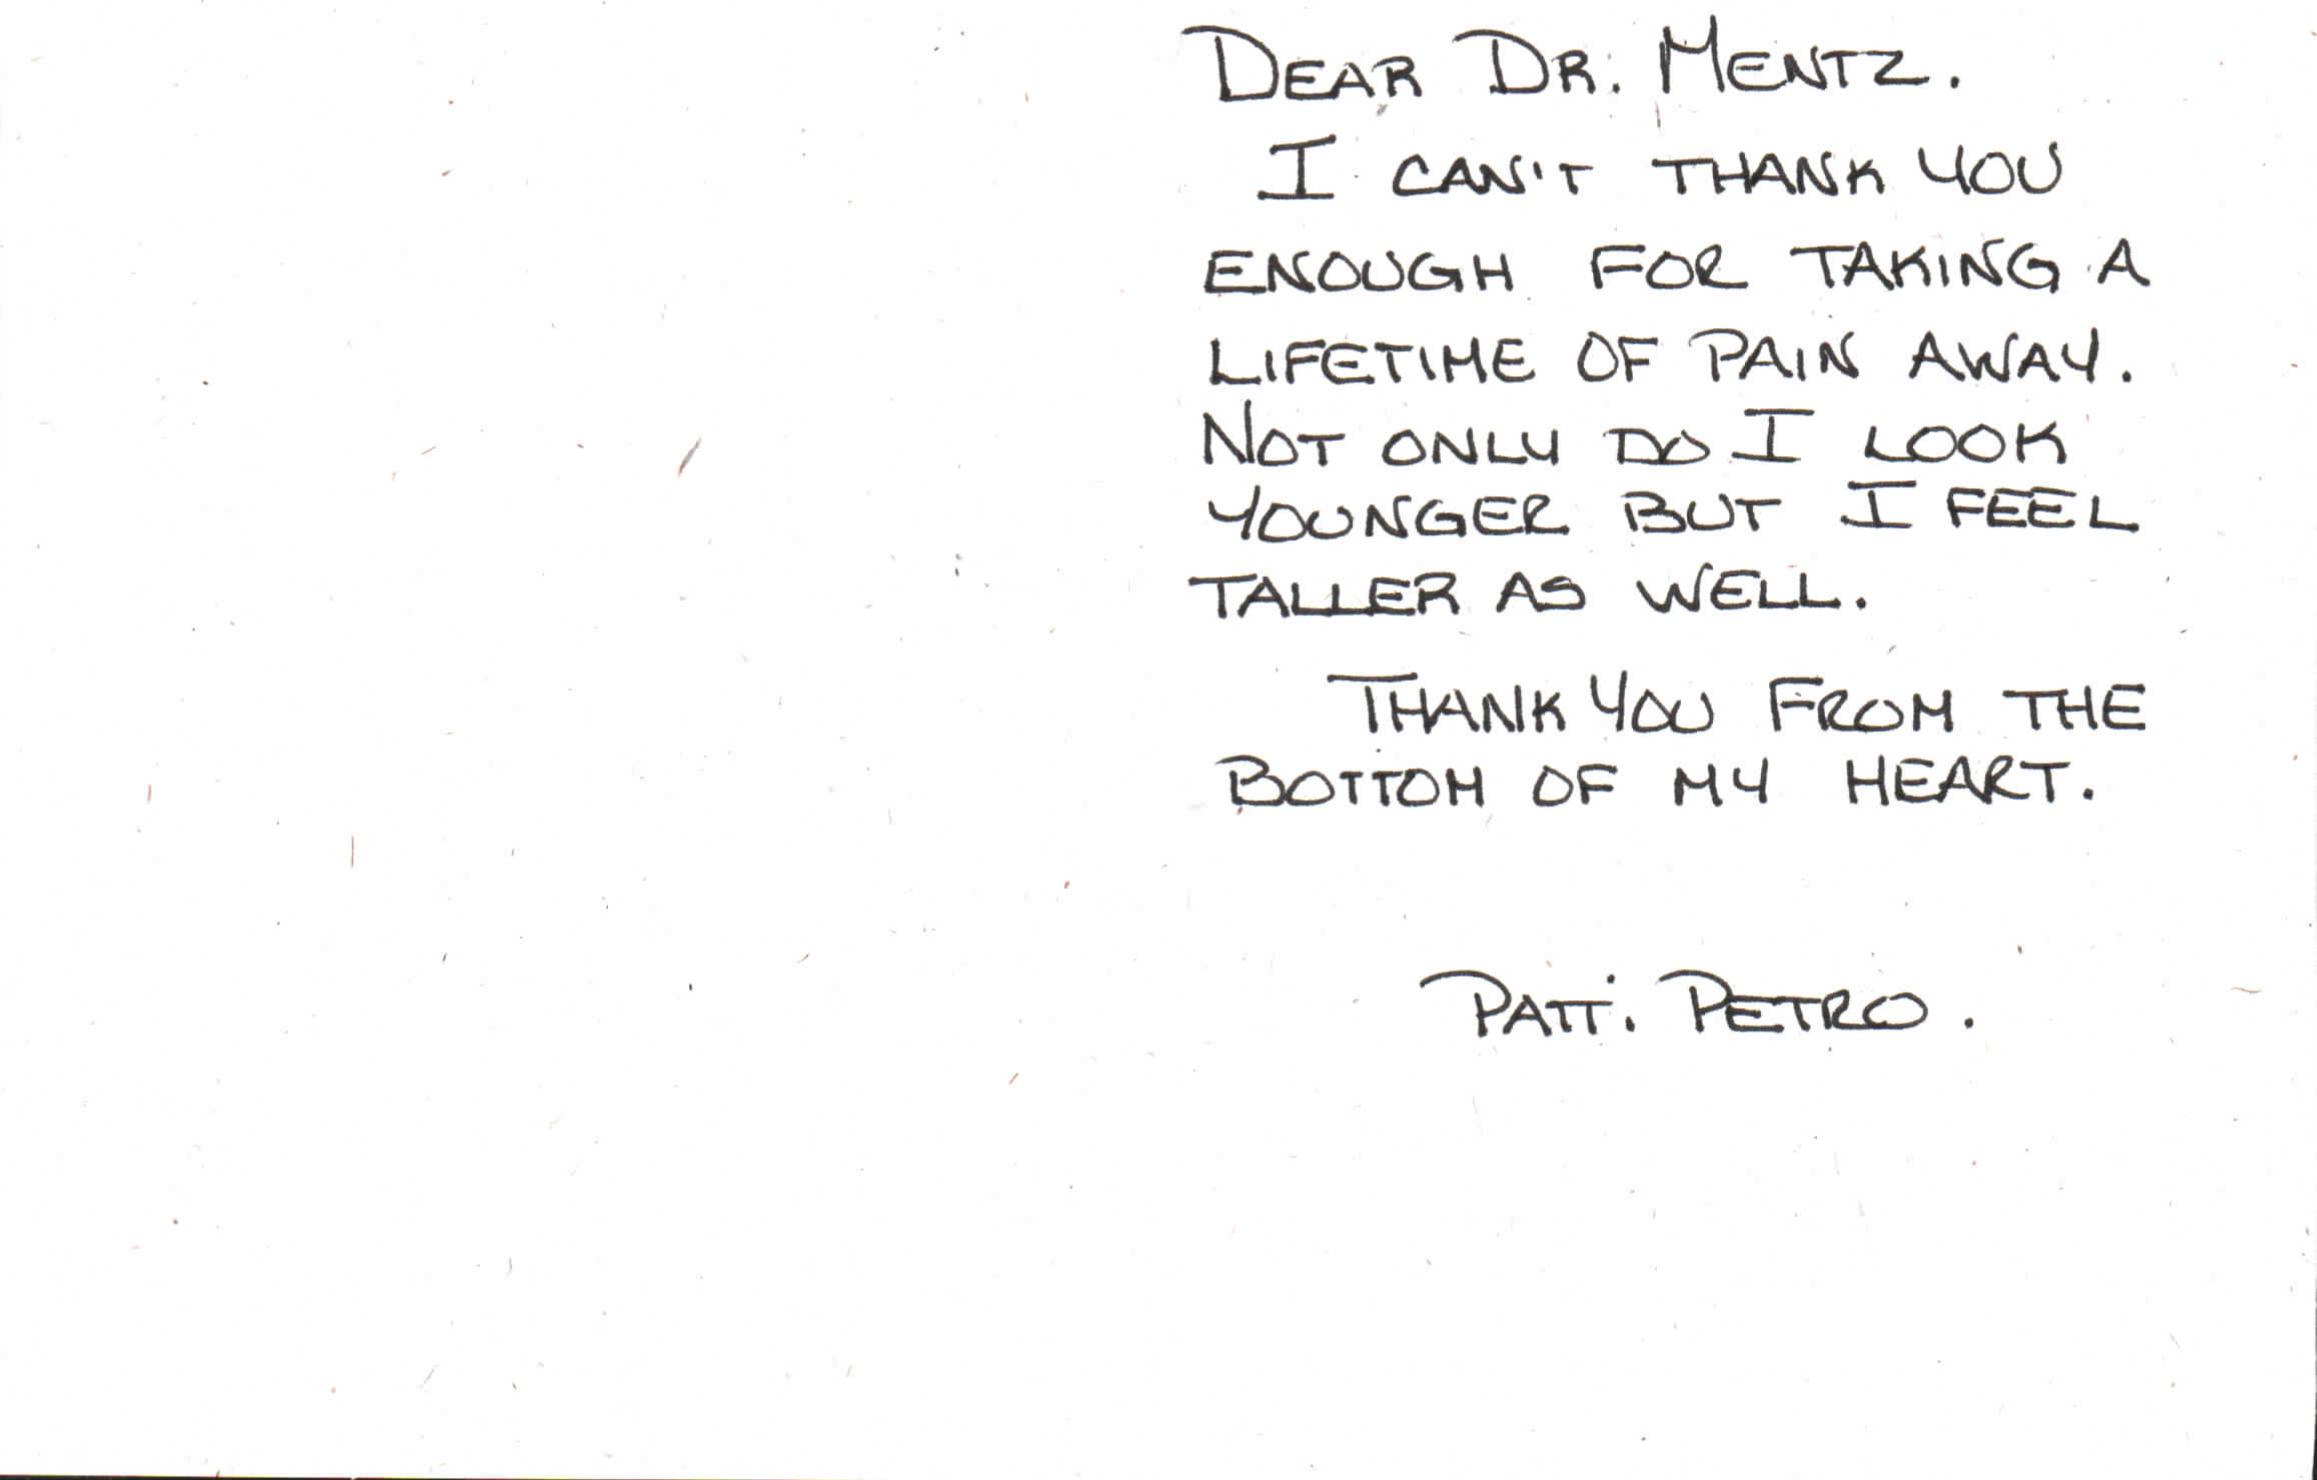 DEAR DR. MENTZ.
I CAN'T THANK YOU
ENOUGH FOR TAKING A
LIFETIME OF PAIN AWAY.
NOT ONLY DO I LOOK
YOUNGER BUT I FEEL
TALLER AS WELL.
THANK YOU FROM THE
BOTTOM OF MY HEART.
PATTI. PETRO.